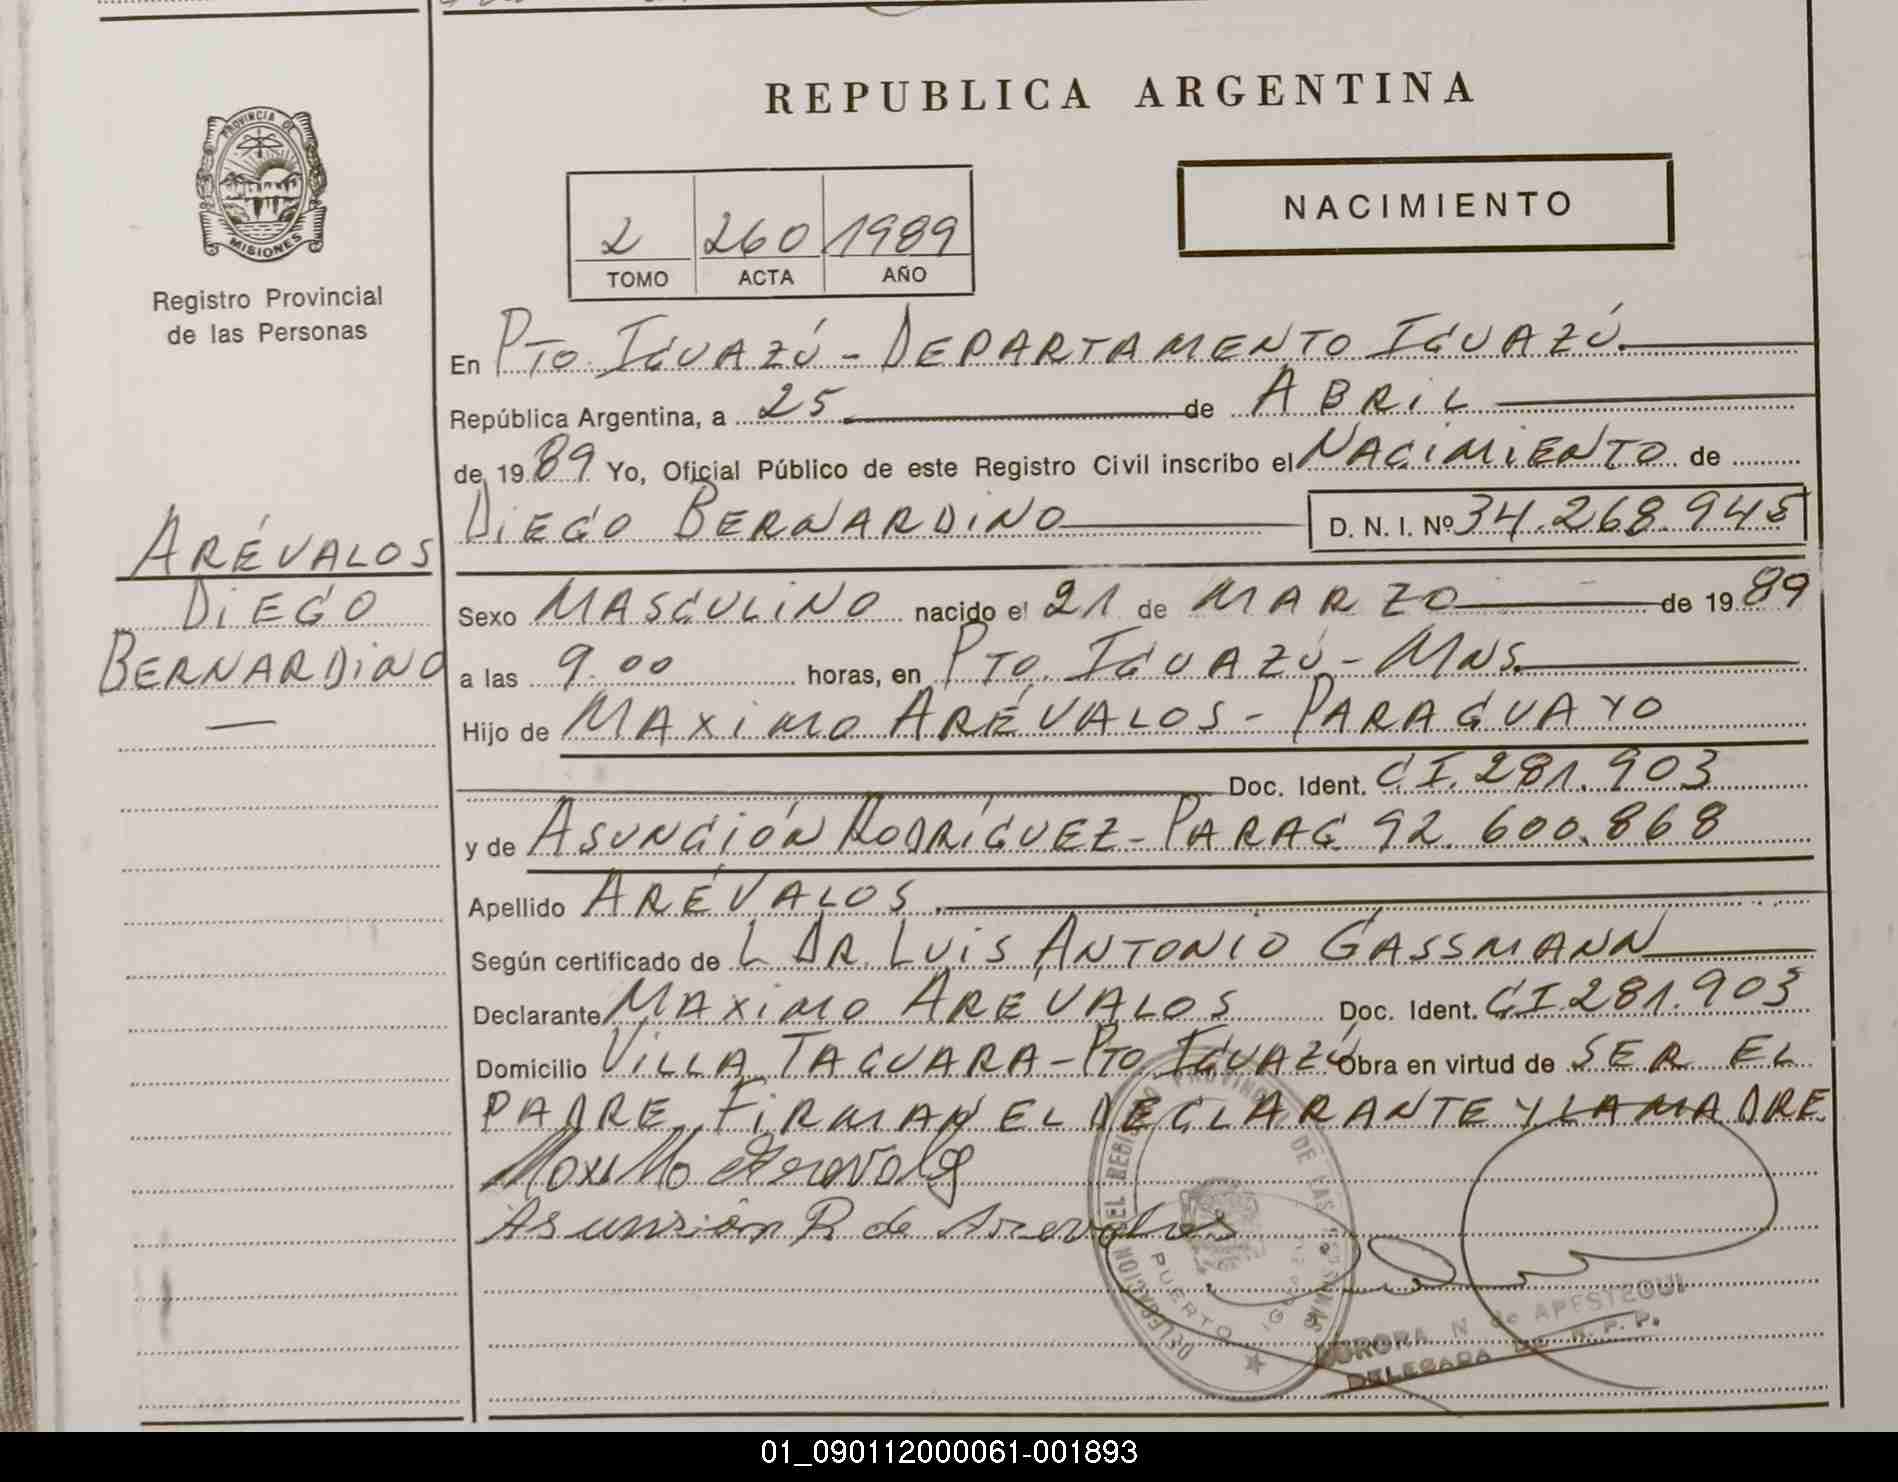 REPUBLICA ARGENTINA
PROVINCIA DE
MISIONES
Registro Provincial
de las Personas
NACIMIENTO
2 260 1989
TOMO ACTA AÑO
En PTO. IGUAZÚ - DEPARTAMENTO IGUAZÚ.
República Argentina, a 25 de ABRIL
de 1989 Yo, Oficial Público de este Registro Civil inscribo el NACIMIENTO de
DIEGO BERNARDINO D. N. I. Nº 34.268.945
ARÉVALOS
DIEGO
BERNARDINO
Sexo MASCULINO nacido el 21 de MARZO de 1989
a las 9.00 horas, en PTO. IGUAZÚ - MNS.
Hijo de MAXIMO ARÉVALOS - PARAGUAYO
Doc. Ident. CI. 281.903
y de ASUNCIÓN RODRÍGUEZ - PARAG. 92.600.868
Apellido ARÉVALOS.
Según certificado de L DR. LUIS ANTONIO GASSMANN
Declarante MAXIMO ARÉVALOS Doc. Ident. CI 281.903
Domicilio VILLA TACUARA - PTO IGUAZÚ Obra en virtud de SER EL
PADRE. FIRMAN EL DECLARANTE Y LA MADRE.
Maximo Arevalos
Asunción R de Arevalos
DELEGACION DEL REGISTRO PROVINCIAL DE LAS PERSONAS
PUERTO IGUAZU
AURORA N. de APESTEGUI
DELEGADA DE R. P. P.
01_090112000061-001893